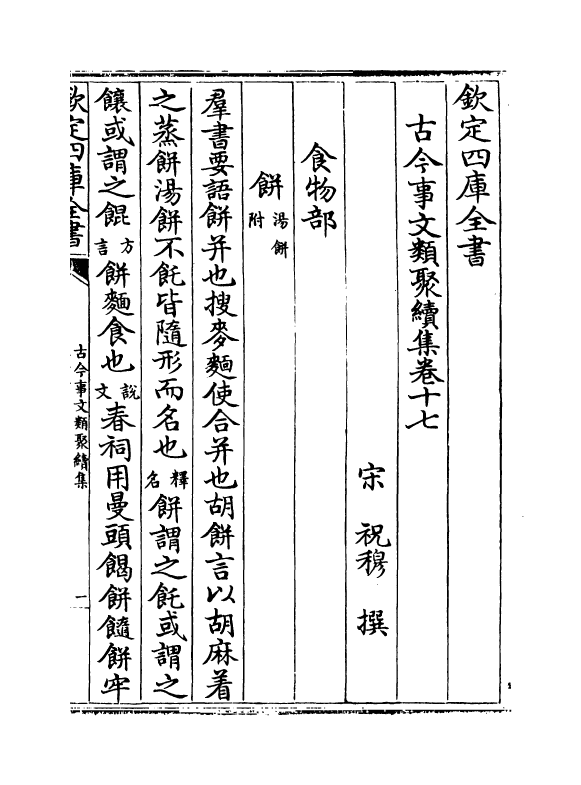 欽定四庫全書
古今事文類聚續集卷十七
宋　祝穆　撰
食物部
餅湯餅附
羣書要語餅并也搜麥麵使合并也胡餅言以胡麻着
之蒸餅湯餅不飥皆隨形而名也釋名餅謂之飥或謂之
饟或謂之餛方言餅麵食也說文春祠用曼頭餲餅髓餅牢
欽定四庫全書
古今事文類聚續集
一